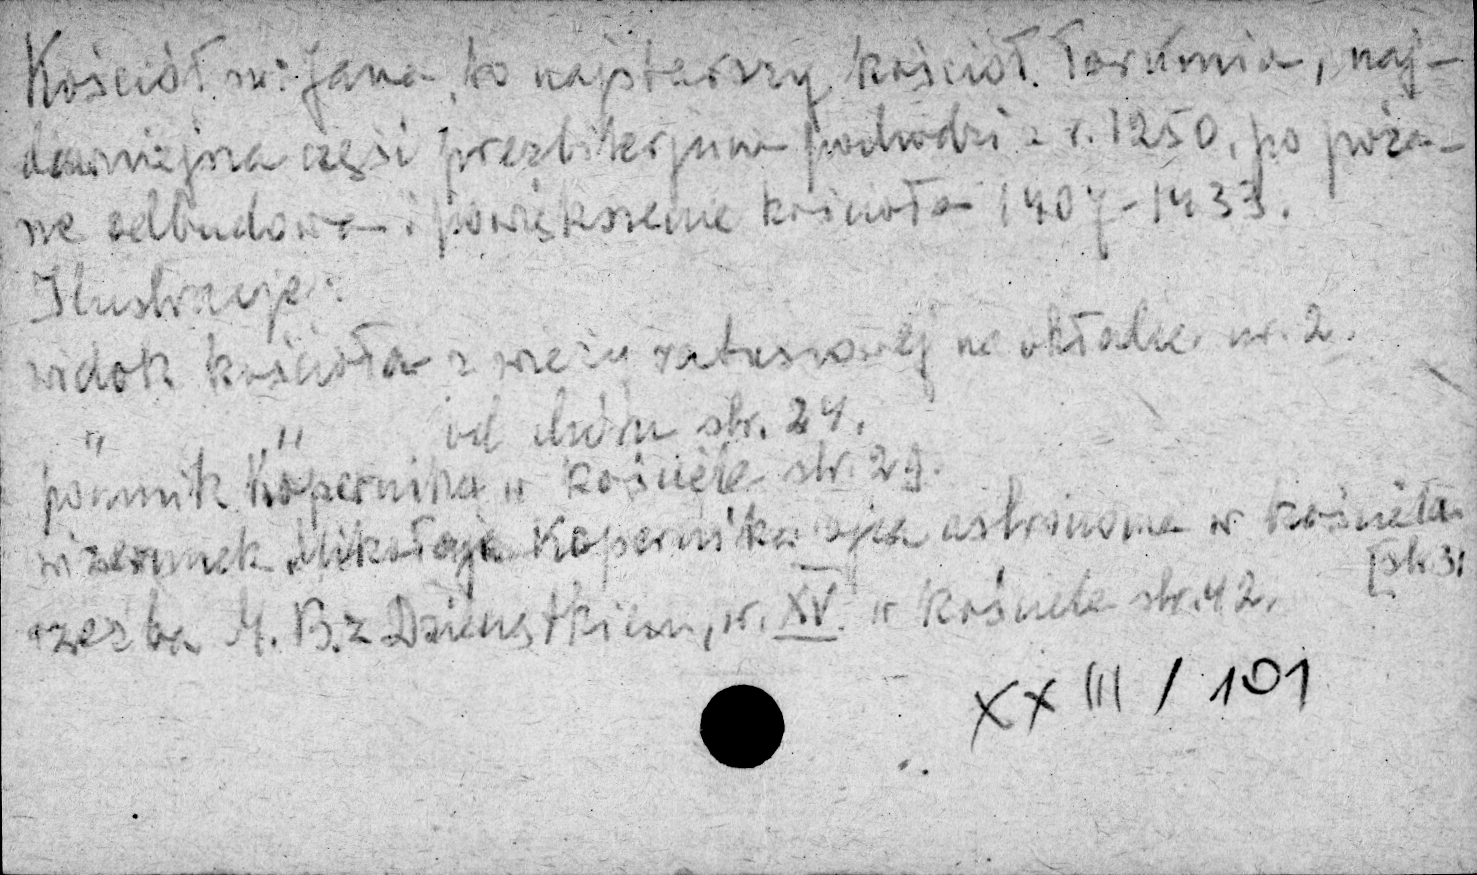 Kościół św. Jana to najstarszy kościół Torunia, naj-
dawniejsza część prezbiterjum pochodzi z r. 1250, po poża-
rze odbudowa i powiększenie kościoła 1407-1433.
Ilustracje:
widok kościoła z wieży ratuszowej na okładce nr. 2.
" " od chóru str. 24.
pomnik Kopernika w kościele str. 29.
wizerunek Mikołaja Kopernika ojca astronoma w kościele
[str 31
rzeźba M. B. z Dzieciątkiem, w. XV. w kościele str. 42.
XXIII / 101